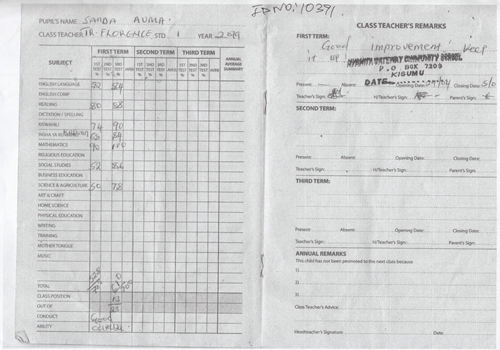 ID NO: 10391
PUPIL'S NAME SANDA AUMA
CLASS TEACHER TR. FLORENCE STD 1 YEAR
FIRST TERM SECOND TERM THIRD TERM
SUBJECT 1ST TEST % 2ND TEST % 1ST TEST % 2ND TEST % 1ST TEST % 2ND TEST % ANNUAL AVERAGE SUMMARY
ENGLISH LANGUAGE 52 84
ENGLISH COMP
READING 80 88
DICTATION / SPELLING
KISWAHILI 74 90
INSHA YA KISWAHILI
MATHEMATICS 90 100
RELIGIOUS EDUCATION
SOCIAL STUDIES 52 86
BUSINESS EDUCATION
SCIENCE & AGRICULTURE 50 78
ART & CRAFT
HOME SCIENCE
PHYSICAL EDUCATION
WRITING
TRAINING
MOTHER TONGUE
MUSIC
TOTAL
CLASS POSITION
OUT OF
CONDUCT Good
ABILITY
CLASS TEACHER'S REMARKS
FIRST TERM:
Good IMPROVEMENT KEEP
IT UP
GATEWAY COMMUNITY SCHOOL
P.O BOX 7209
KISUMU
DATE
Present: Absent: Opening Date: Closing Date:
Teacher's Sign: H/Teacher's Sign: Parent's Sign:
SECOND TERM:
Present: Absent: Opening Date: Closing Date:
Teacher's Sign: H/Teacher's Sign: Parent's Sign:
THIRD TERM:
Present: Absent: Opening Date: Closing Date:
Teacher's Sign: H/Teacher's Sign: Parent's Sign:
ANNUAL REMARKS
This child has not been promoted to the next class because
1)
2)
3)
Class Teacher's Advice:
Headteacher's Signature Date: